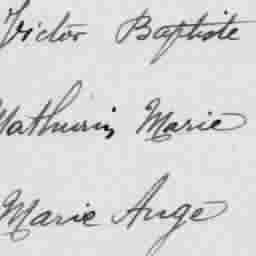 Victor Baptiste
Mathurin Marie
Marie Ange